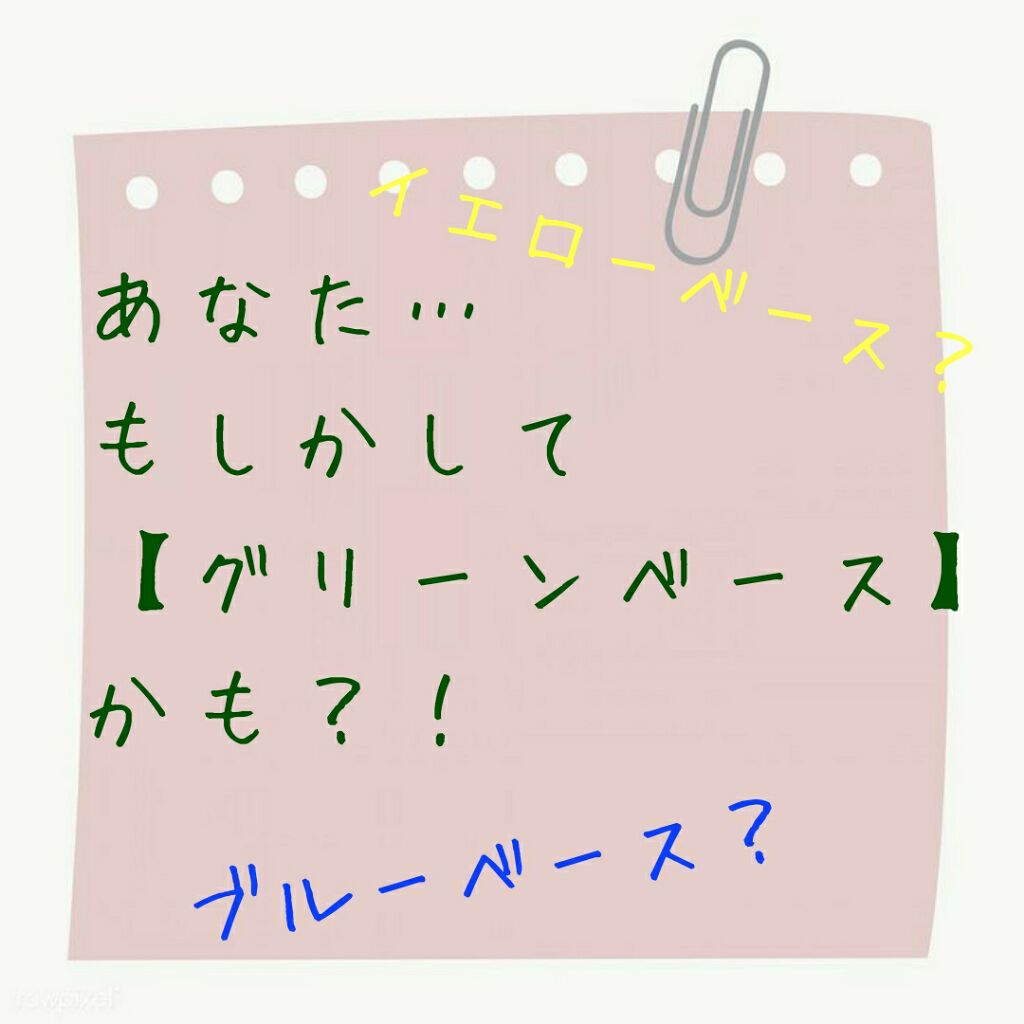 イエローベース？
あなた…
もしかして
【グリーンベース】
かも？！
ブルーベース？
rawpixel